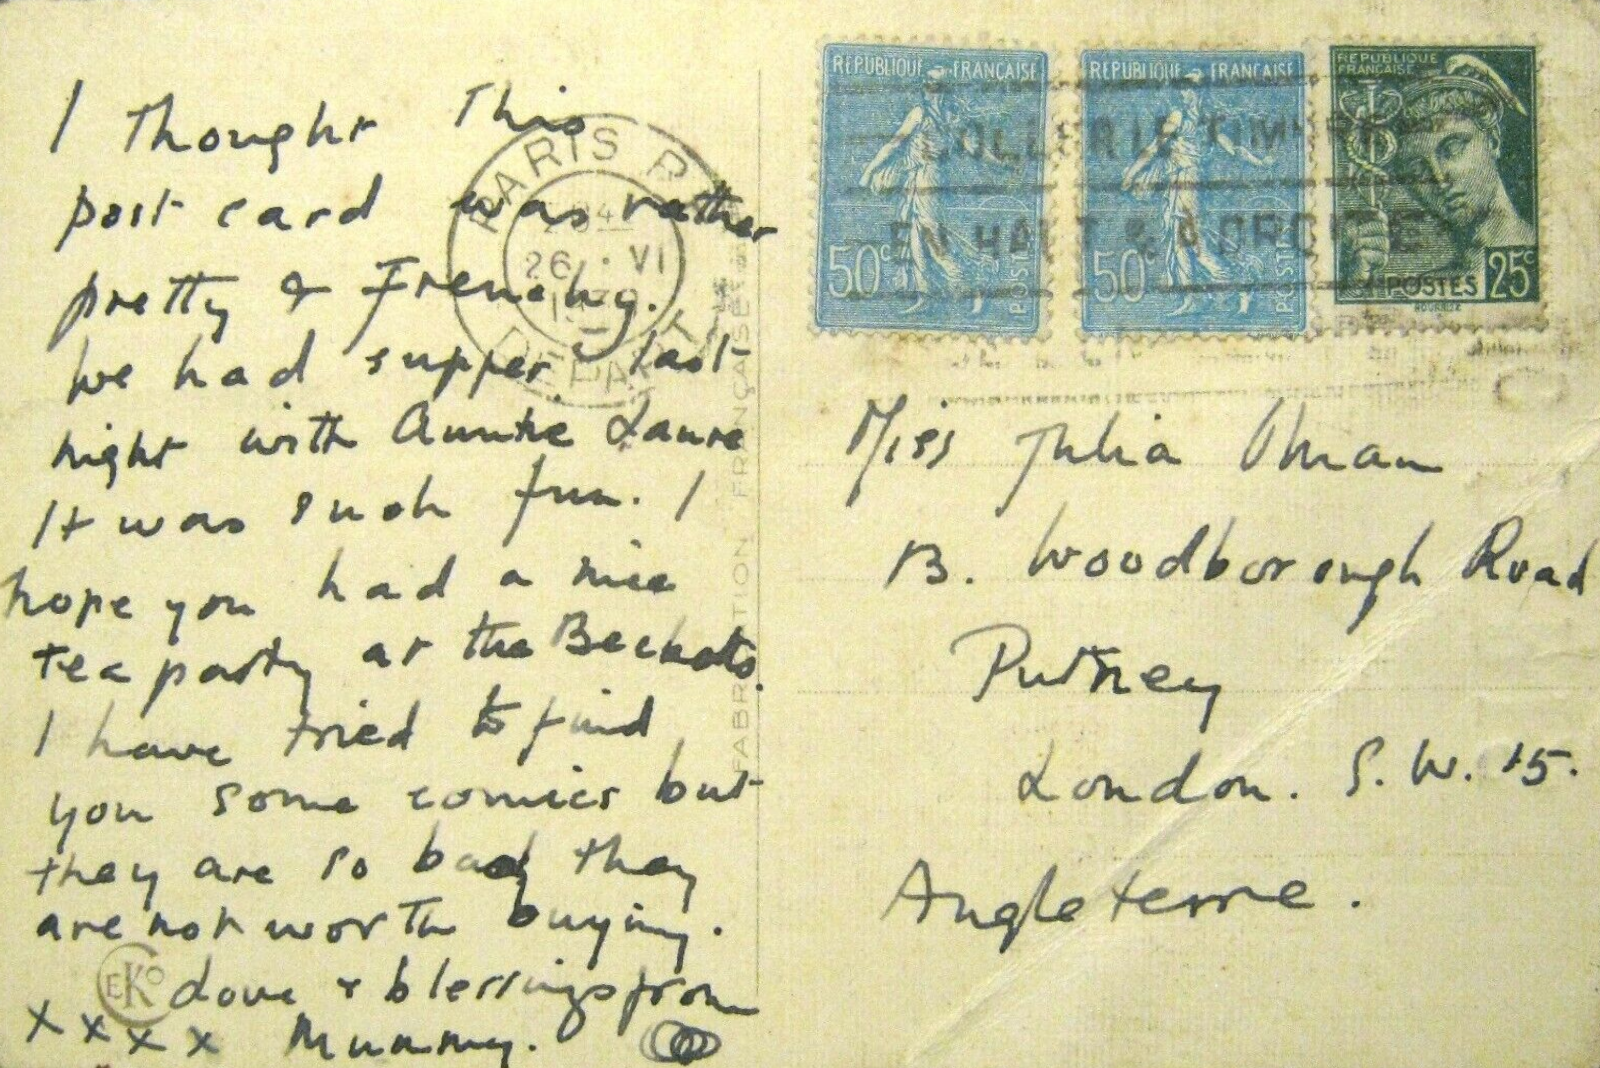 I thought this
post card was rather
pretty & Frenchy.
We had supper last
night with Auntie Laure
It was such fun. I
hope you had a nice
tea party at the Beckets.
I have tried to find
you some comics but
they are so bad they
are not worth buying.
Love & blessings from
x x x x Mummy.
EKO
FABRICATION FRANÇAISE
PARIS R
26 · VI
DEPART
RÉPUBLIQUE FRANÇAISE
50c
POSTES
RÉPUBLIQUE FRANÇAISE
50c
POSTES
REPUBLIQUE
FRANÇAISE
POSTES 25c
COLLER LE TIMBRE
EN HAUT & A DROITE
Miss Julia
B. Woodborough Road
Putney
London. S. W. 15.
Angleterre.